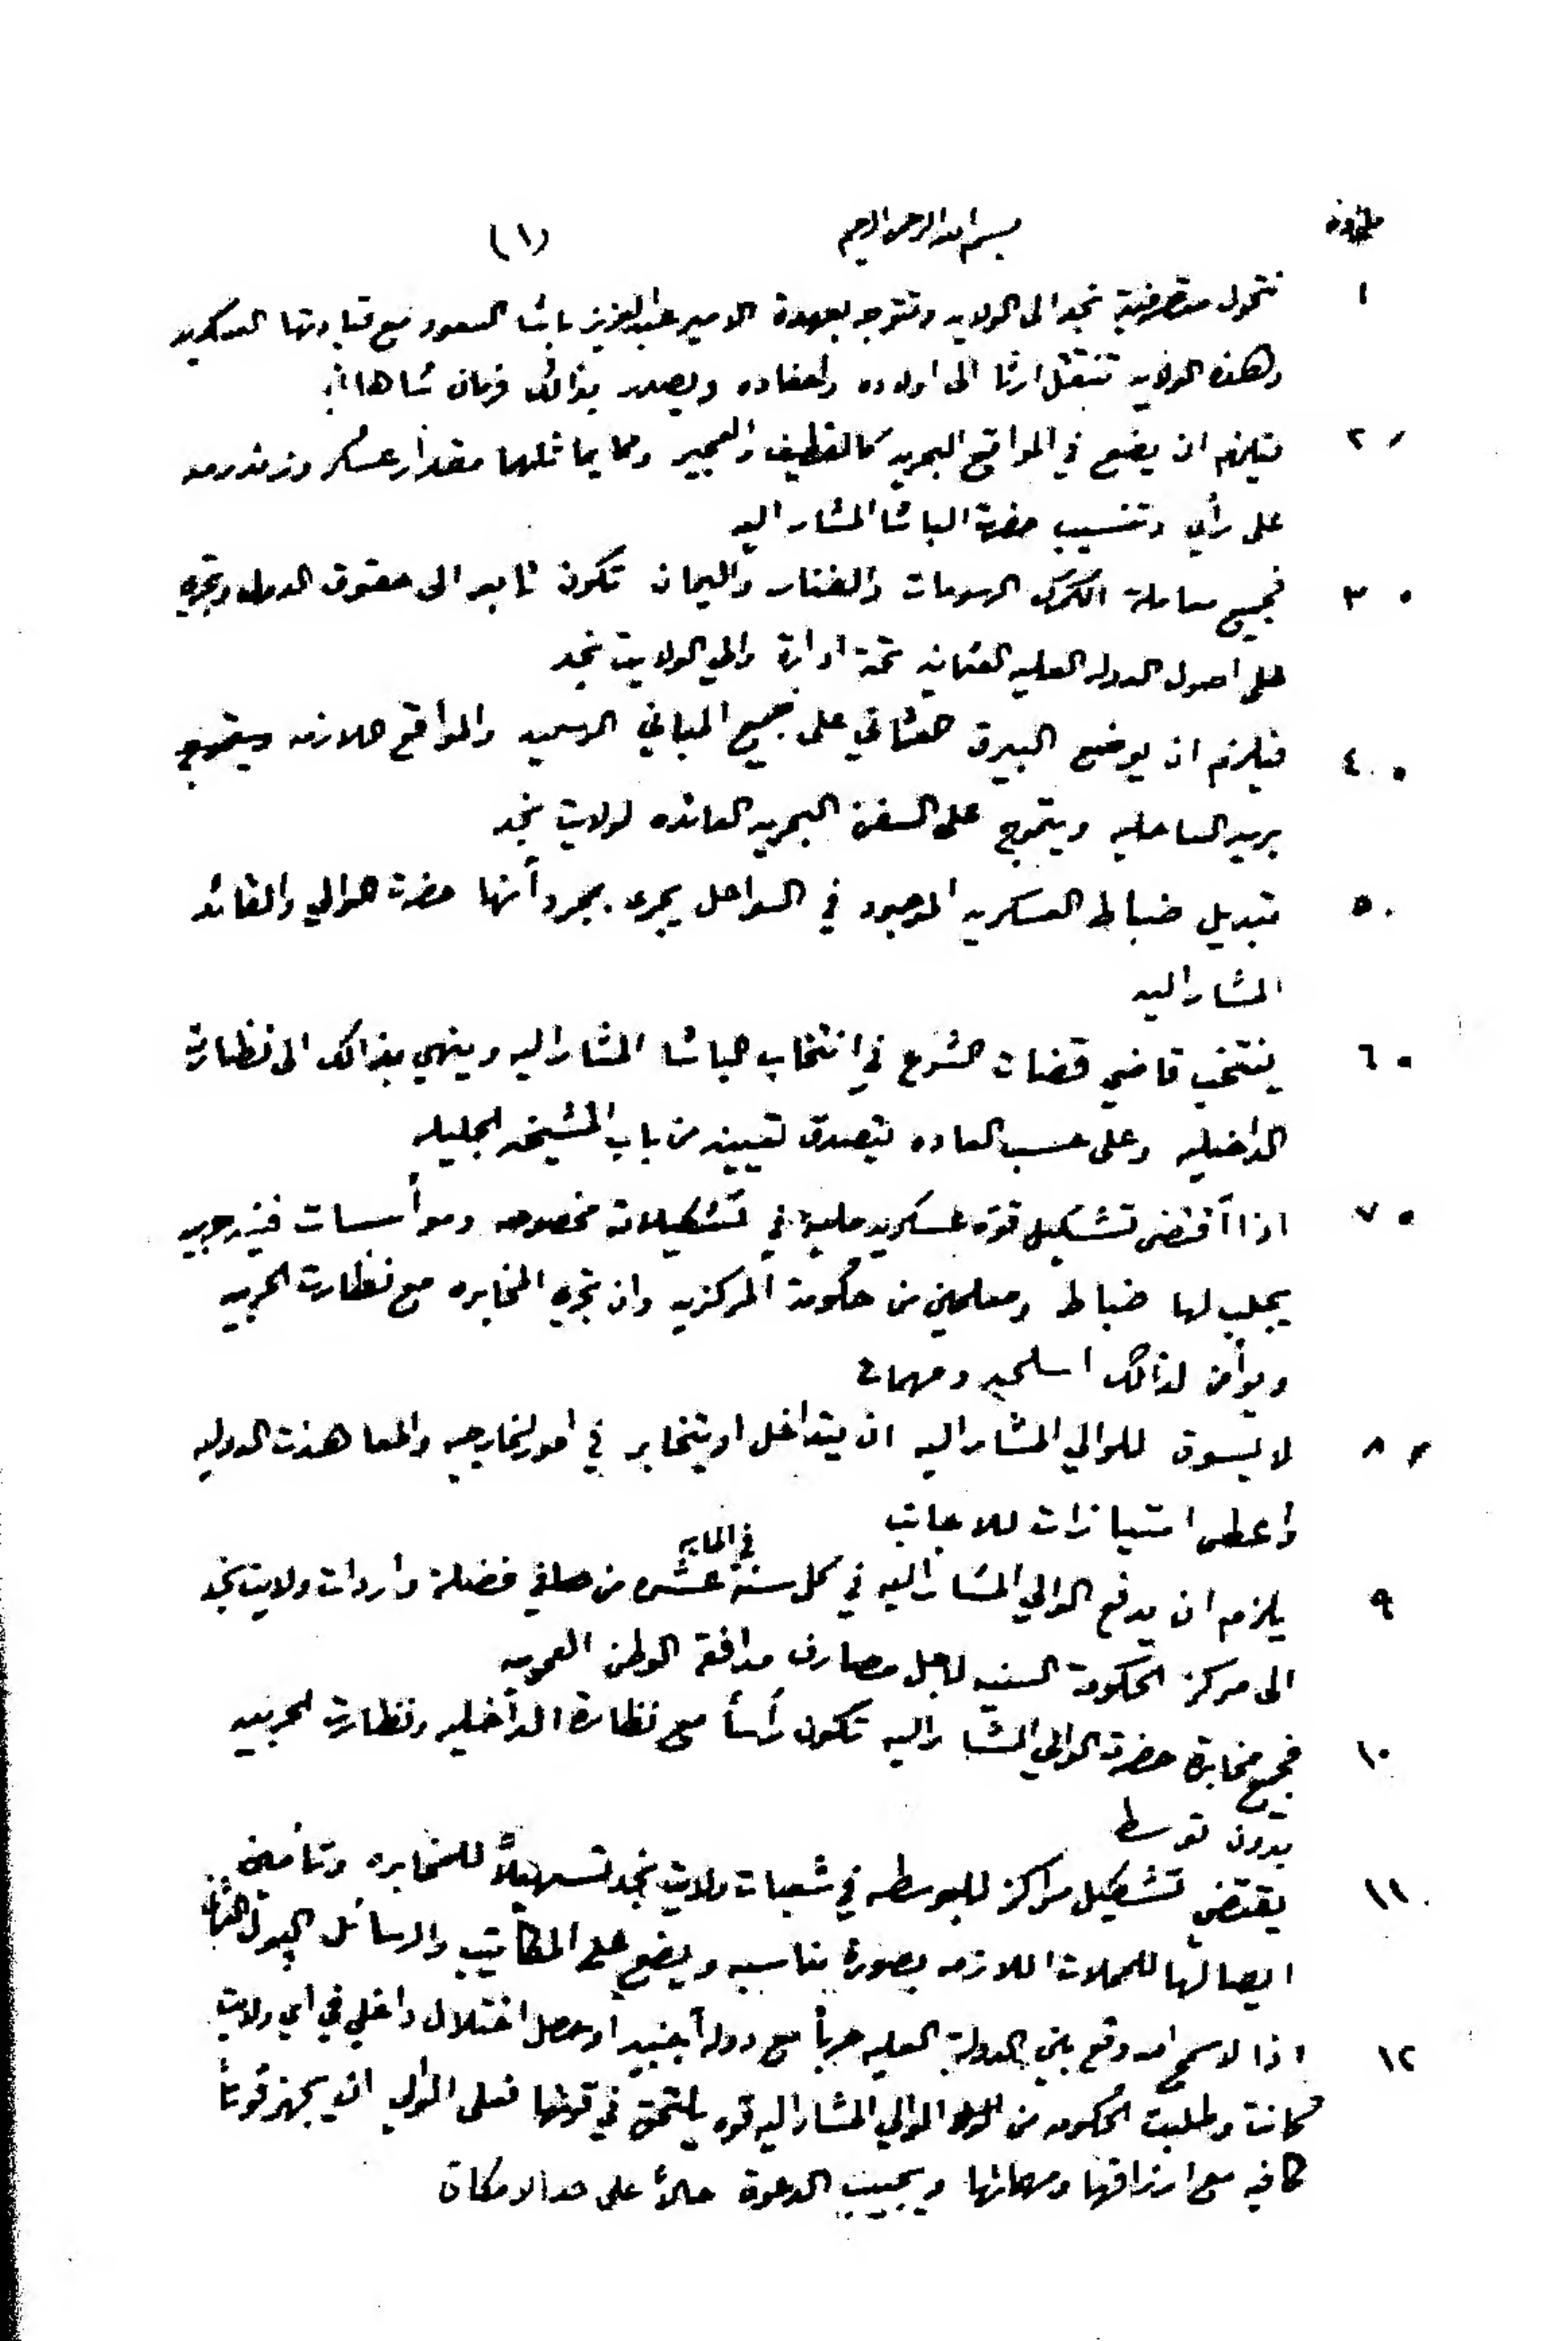 بسم الله الرحمن الرحيم (١)
١ تتحول متصرفية نجد الى الولايه وتتوجه بعهدة الامير عبدالعزيز باشا السعود مع قيادتها العسكريه
وهذه الولايه تنتقل ارثا الى اولاده واحفاده ويصدر بذالك فرمان شاهاني
٢ فيلزم ان يضع في المواقع البحريه كالقطيف والعجير ومما يماثلهما مقدار عسكر وزندرمه
على رأي وتنسيب حضرة الباشا المشار اليه
٣ فجميع معاملة الكمرك الرسومات والفنار واليمان تكون تابعه الى حقوق الدول وتجري
على اصول الدوله العليه العثمانيه تحت ادارة والي الولايت نجد
٤ فيلزم ان يوضع البيرق العثماني على جميع المباني الرسميه والمواقع اللازمه
الساحليه ويتموج على السفن البحريه العائده لولايت نجد
٥ تبديل ضباط العسكريه الموجود في السواحل يجري بمجرد أنها حضرة الوالي والقائد
المشار اليه
٦ ينتخب قاضي قضات الشرع في انتخاب الباشا المشار اليه وينهي بذالك الى نظارت
الداخليه وعلى حسب العاده يتصدق تعيينه من باب المشيخه الجليله
٧ اذا أقتضى تشكيل قوة عسكريه مليه في تشكيلات مخصوصه وموأسسات
يجلب لها ضباط ومعلمين من حكومة المركزيه وان تجري المخابره مع نظارت الحربيه
ويوأمن لذالك اسلحه ومهمات
٨ لا يسوق للوالي المشار اليه ان يتداخل او يتخابر في امور الخارجيه والمعاهدات الدوليه
وأعطى امتيازات للاجانب
في المايه
٩ يلزم ان يدفع الوالي المشار اليه في كل سنة عشر من صافي فضلة واردات ولايت نجد
الى مركز الحكومة السنيه لاجل مصارف مدافعة الوطن العموميه
١٠ فجميع مخابرة حضرت الوالي المشار اليه تكون رأسأ مع نظارة الداخليه ونظارت الحربيه
بدون توسط
١١ يقتضي تشكيل مراكز للبوسطه في شعبات ولايت نجد تسهيلاً للمخابره وتأمين
ايصالها للمحلات اللازمه بصورة مناسبه ويضع على المكاتيب والرسائل البول العثماني
١٢ اذا لاسمح الله وقع بين الدولة العليه حربأ مع دولة أجنبيه أو حصل اختلال داخلي في اي ولايت
كانت وطلبت الحكومه من الوالي المشار اليه قوه يلتحق في قوتها فعلى الوالي ان يجهز قوتأ
كافيه مع ارزاقها ومهماتها ويجيب الدعوة حالاً على حد الامكان